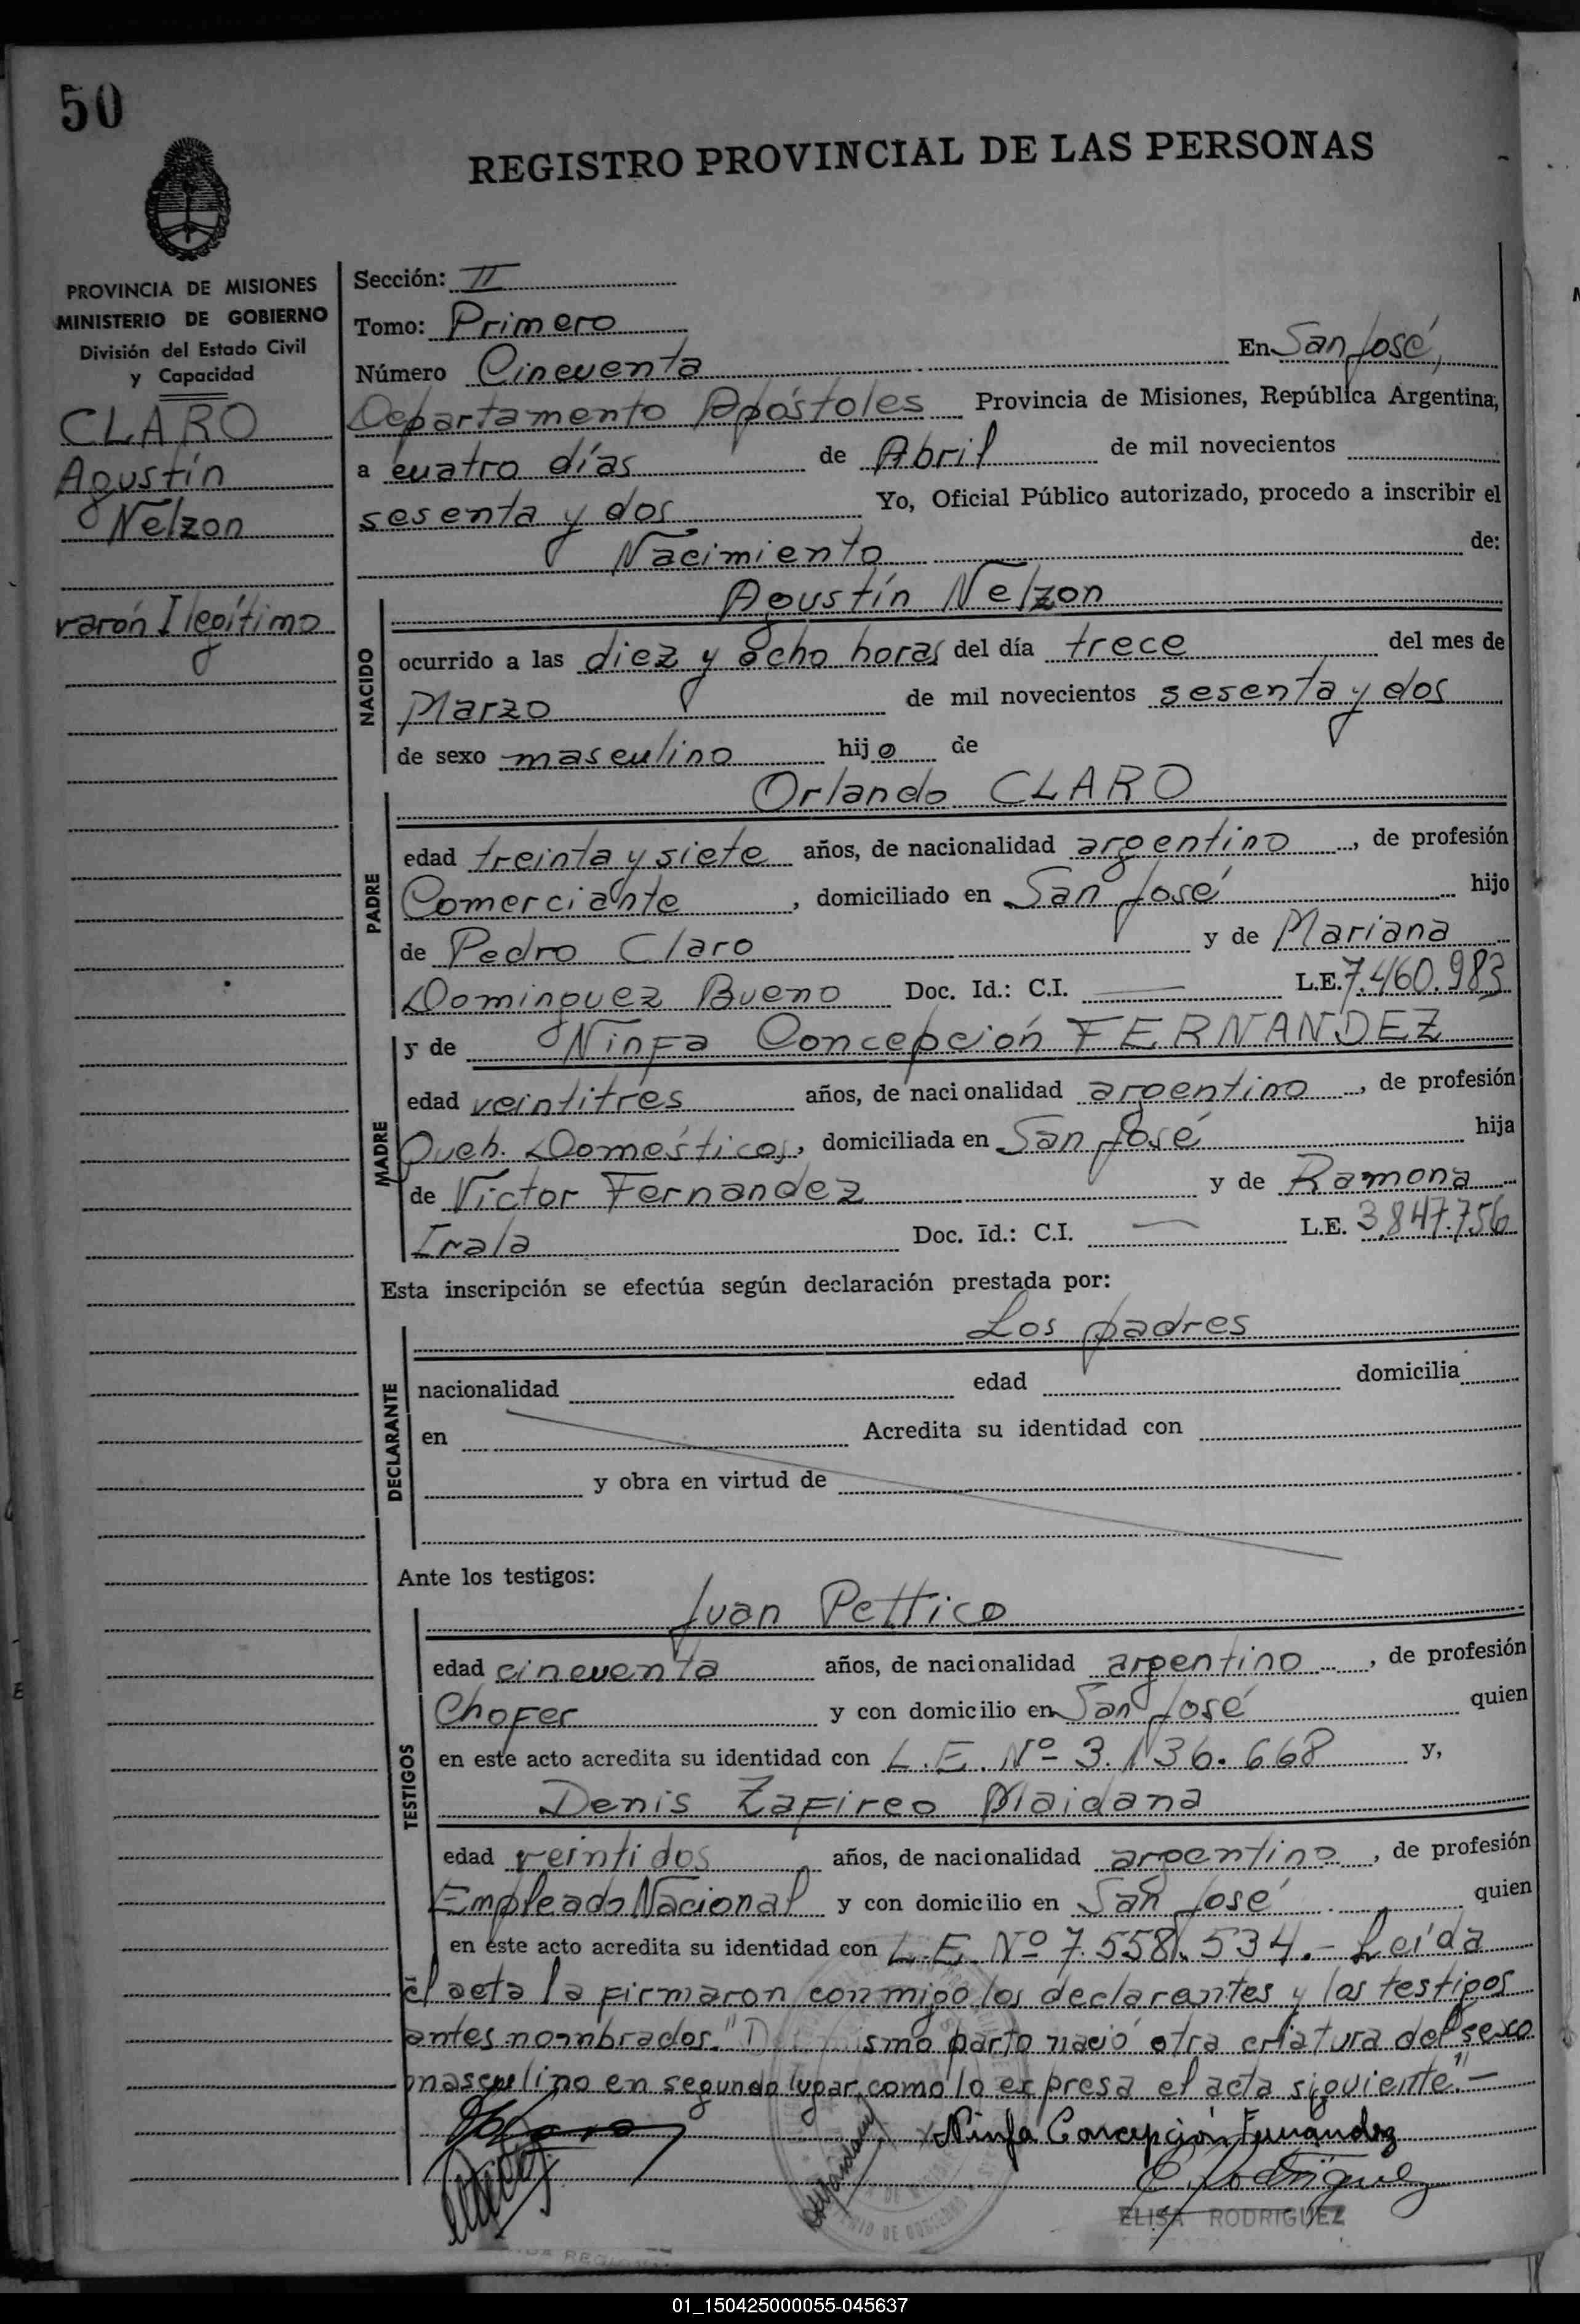 50
REGISTRO PROVINCIAL DE LAS PERSONAS
PROVINCIA DE MISIONES
MINISTERIO DE GOBIERNO
División del Estado Civil
y Capacidad
CLARO
Agustín
Nelzon
varón Ilegítimo
Sección: II
Tomo: Primero
Número Cincuenta En San José,
Departamento Apóstoles Provincia de Misiones, República Argentina,
a cuatro días de Abril de mil novecientos
sesenta y dos Yo, Oficial Público autorizado, procedo a inscribir el
Nacimiento de:
NACIDO
Agustín Nelzon
ocurrido a las diez y ocho horas del día trece del mes de
Marzo de mil novecientos sesenta y dos
de sexo masculino hijo de
PADRE
Orlando CLARO
edad treinta y siete años, de nacionalidad argentino, de profesión
Comerciante, domiciliado en San José hijo
de Pedro Claro y de Mariana
Dominguez Bueno Doc. Id.: C.I. — L.E. 7.460.983
MADRE
y de Ninfa Concepción FERNANDEZ
edad veintitres años, de nacionalidad argentino, de profesión
Queh. Domésticos, domiciliada en San José hija
de Victor Fernandez y de Ramona
Irala Doc. Id.: C.I. — L.E. 3.847.756
Esta inscripción se efectúa según declaración prestada por:
DECLARANTE
Los padres
nacionalidad edad domicilia
en Acredita su identidad con
y obra en virtud de
Ante los testigos:
TESTIGOS
Juan Pettico
edad cincuenta años, de nacionalidad argentino, de profesión
Chofer y con domicilio en San José quien
en este acto acredita su identidad con L.E. Nº 3.136.668 y,
Denis Zafireo Maidana
edad veintidos años, de nacionalidad argentino, de profesión
Empleado Nacional y con domicilio en San José quien
en este acto acredita su identidad con L.E. Nº 7.558.534.- Leída
el acta la firmaron conmigo los declarantes y los testigos
antes nombrados. "D ismo parto nació otra criatura del sexo
masculino en segundo lugar, como lo expresa el acta siguiente".-
Ninfa Concepción Fernández
E Rodríguez
ELISA RODRIGUEZ
01_150425000055-045637